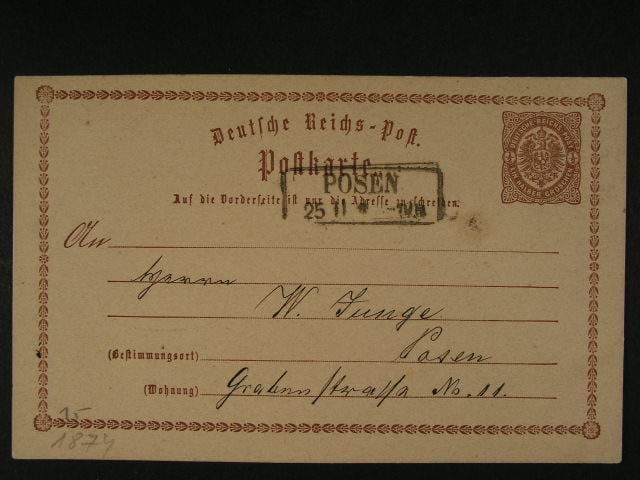 Deutsche Reichs-Post.
Postkarte.
Auf die Vorderseite ist nur die Adresse zu schreiben.
POSEN
25 11
An
Herrn
W. Junge
Posen
(Bestimmungsort)
(Wohnung) Grabenstrasse No. 11.
15
1874